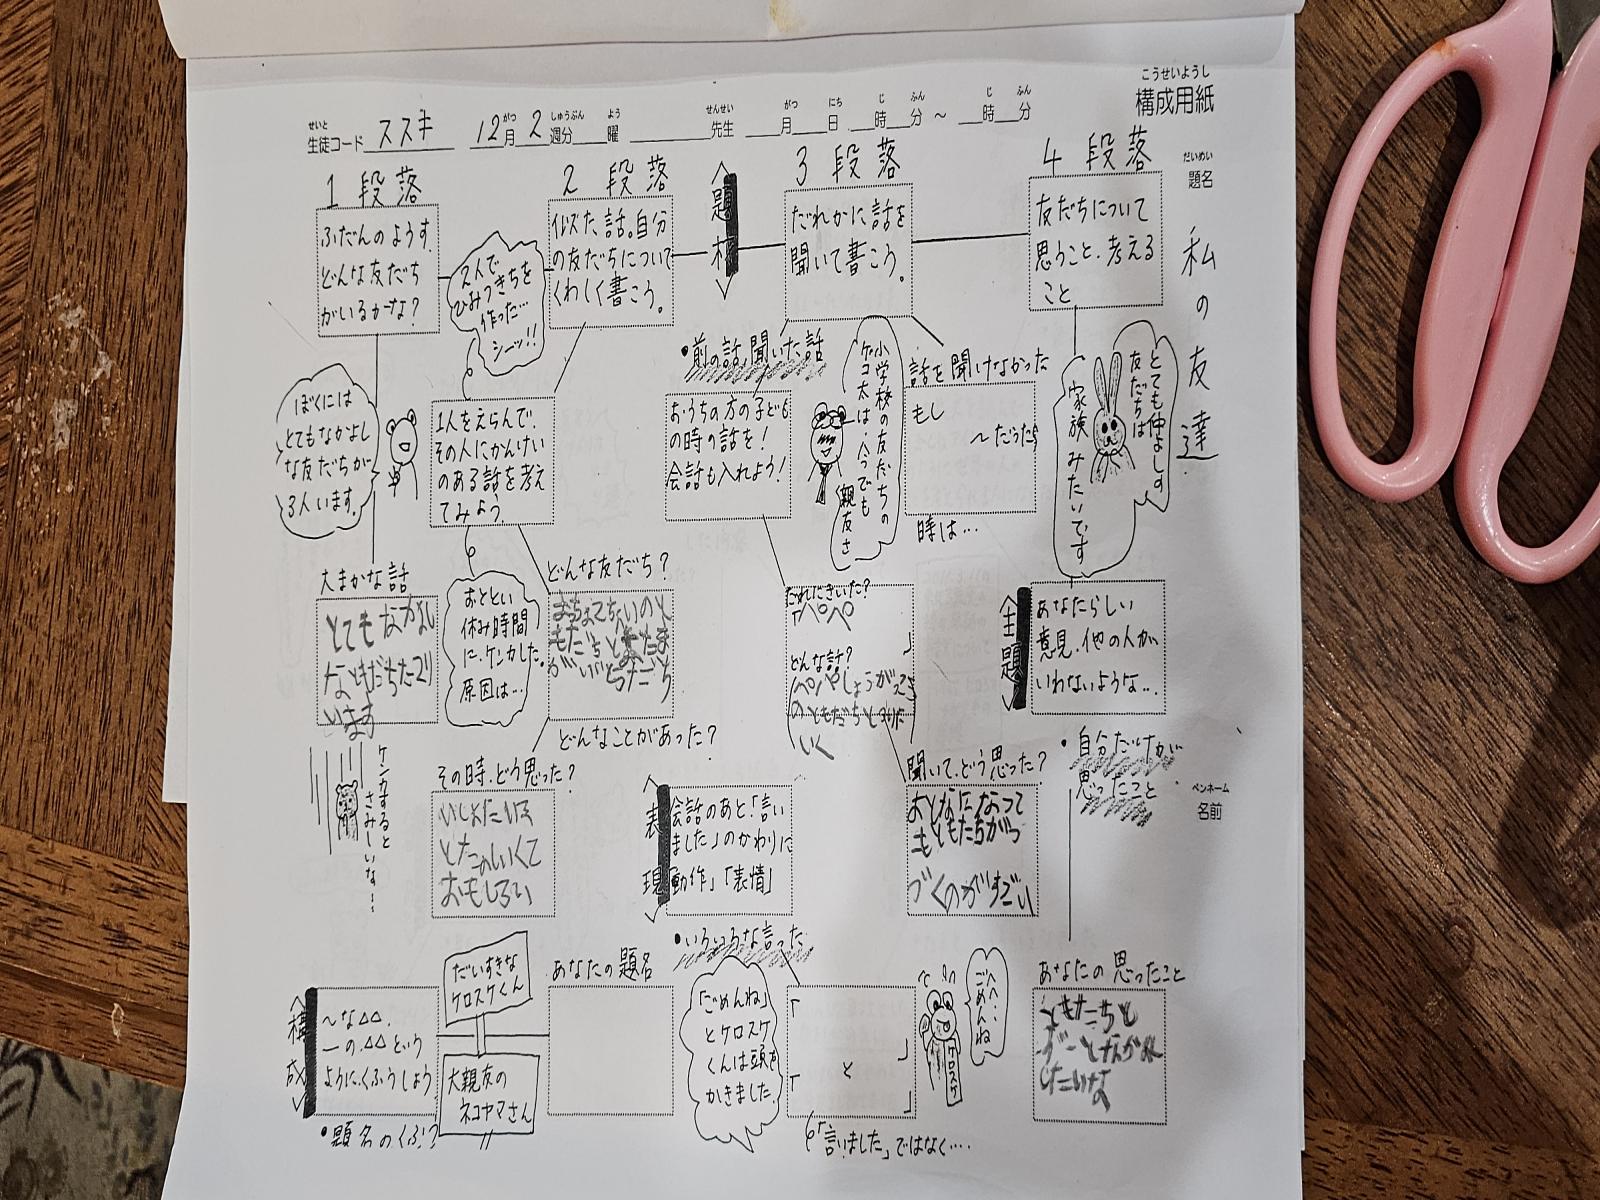 こうせいようし
構成用紙
せいと がつ しゅうぶん よう せんせい がつ にち じ ふん じ ふん
生徒コード ススキ 12月 2 週分 曜 先生 月 日 時 分 ~ 時 分
だいめい
題名
私の友達
ペンネーム
名前
1 段落
ふだんのようす。
どんな友だち
がいるかな?
ぼくには
とてもなかよし
な友だちが
3人います。
大まかな話
とてもなかよし
なともだちた
います
ケンカすると
さみしいな…
2 段落
似た話。自分
の友だちについて
くわしく書こう。
2人で
ひみつきちを
作った…
シーッ!!
1人をえらんで、
その人にかんけい
のある話を考え
てみよう。
おととい
休み時間
に、ケンカした。
原因は…
どんな友だち?
どんなことがあった?
その時、どう思った?
いしょにいる
とたのしいくて
おもしろい
題材
3 段落
だれかに話を
聞いて書こう。
・前の話、聞いた話
おうちの方の子ども
の時の話を!
会話も入れよう!
小学校の友だちの
ケコ太は、今でも
親友さ
話を聞けなかった
もし
~だったら
時は…
だれにきいた?
パパ
どんな話?
のともだちと
いく
聞いて、どう思った?
おとなになって
もともだちがつ
づくのがすごい
表現
会話のあと「言い
ました」のかわりに
「動作」「表情」
・いろいろな言った
「ごめんね」
とケロスケ
くんは頭を
かきました。
「
」
と
「
」
「言いました」ではなく…
へへ…
ごめんね
ケロスケ
4 段落
友だちについて
思うこと、考える
こと
とても仲よしす
友だちは
家族みたいです
主題
あなたらしい
意見、他の人が
いわないような…
・自分だけが
思ったこと
あなたの思ったこと
ともだちと
ずーとなかよ
したいな
構成
~な△△。
ーの△△という
ようにくふうしよう
・題名のくふう
だいすきな
ケロスケくん
大親友の
ネコヤマさん
あなたの題名